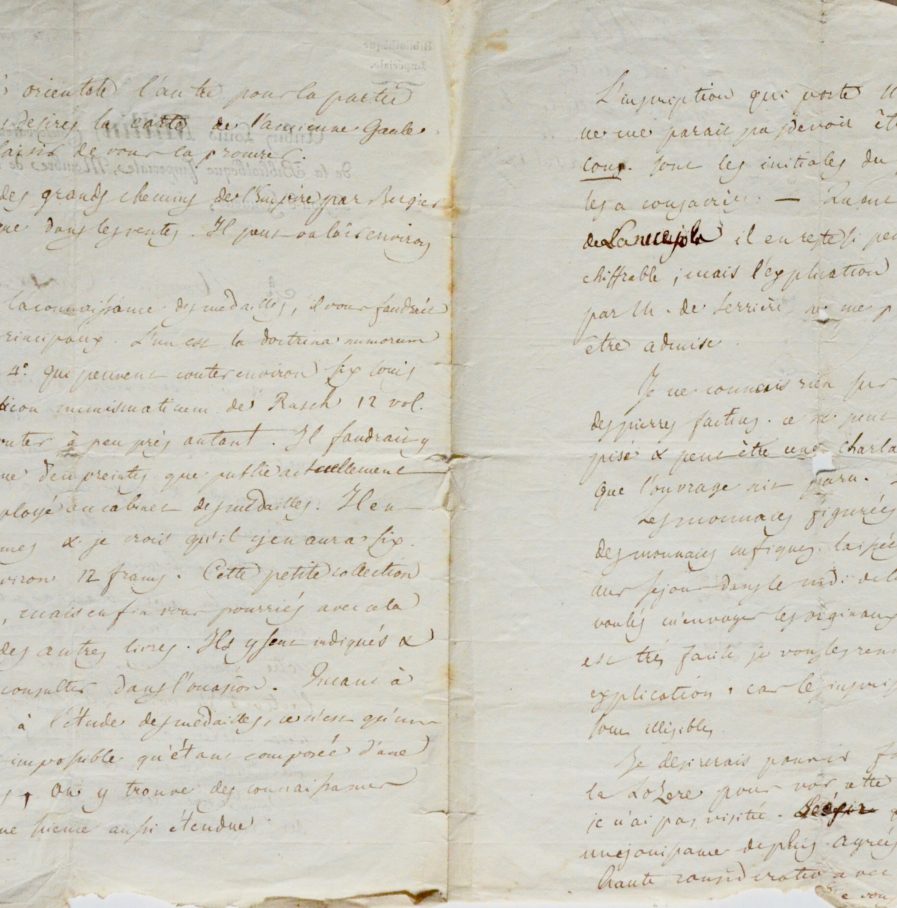 orientale l'autre pour la partie
desirés la carte de l'ancienne Gaule.
plaisir de vous la procurer.
des grands chemins de l'Empire par Bergier
dans les ventes. Il peut valoir environ
la connaissance des medailles, il vous faudrait
principaux. L'un est la doctrina numorum
4°. qui peuvent couter environ six louis
numismaticum de Rasch 12 vol.
couter à peu près autant. Il faudrait y
d'empreintes que publie actuellement
employé au cabinet des medailles. Il en
& je crois qu'il y en aura six.
environ 12 francs. Cette petite collection
, mais enfin vous pourriés avec cela
des autres livres. Ils y sont indiqués &
consulter dans l'occasion. Quant à
à l'étude des medailles, ce n'est qu'une
impossible qu'étant composée d'une
, On y trouve des connaissances
une science aussi étendue.
Bibliothèque
Impériale.
de la Bibliothèque Impériale, Membre de
L'inscription qui porte
ne me parait pas devoir êt
cons. sont les initiales du
les a consacrés. — Quant
de Lanuejols il en reste si peu
chiffrable ; mais l'explication
par M. de ne me p
être admise.
Je ne connais rien sur
des pierres factices. ce ne peut
& peut être une charla
que l'ouvrage ait paru.
Les monnaies figurées
des monnaies
sejour dans le midi de l
voulés m'envoyer les originaux
est très facile, je vous les ren
explication, car les inscrip
sont illisibles.
Je desirerais pouvoir f
la Lozere pour voir cette
je n'ai pas visité.
une jouissance de plus. agrée
haute consideration avec